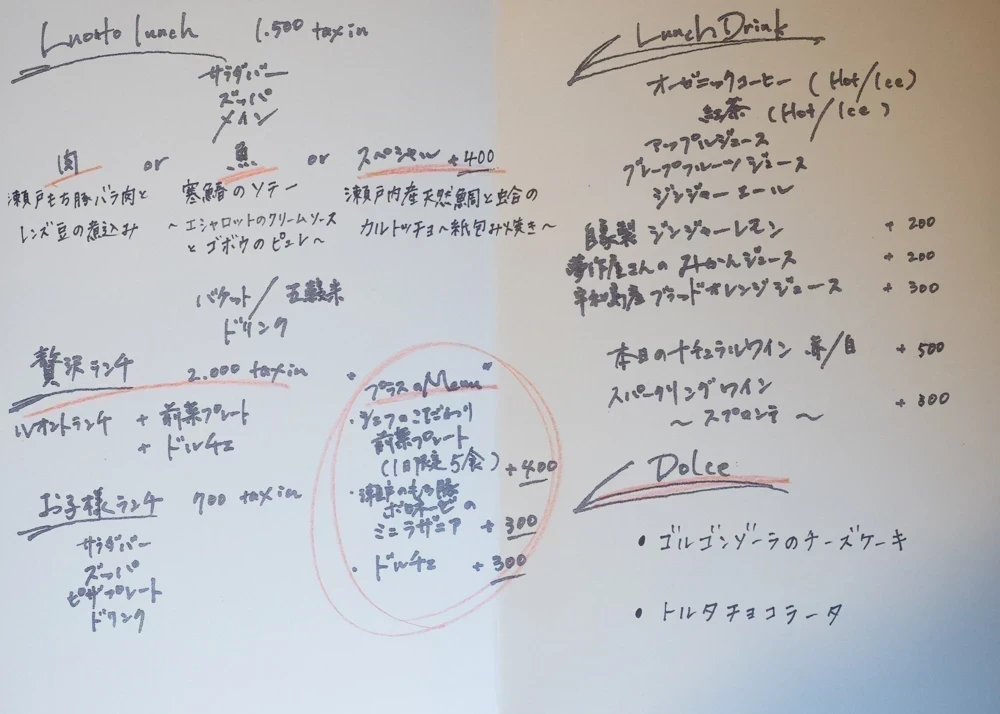 Luogo lunch 1.500 tax in
サラダバー
ズッパ
メイン
肉 or 魚 or スペシャル +400
瀬戸もち豚バラ肉と
レンズ豆の煮込み
寒鰆のソテー
〜エシャロットのクリームソース
とゴボウのピュレ〜
瀬戸内産天然鯛と蛤の
カルトッチョ〜紙包み焼き〜
バケット/五穀米
ドリンク
贅沢ランチ 2.000 tax in
ルオントランチ + 前菜プレート
+ ドルチェ
お子様ランチ 700 tax in
サラダバー
ズッパ
ピザプレート
ドリンク
"プラスのMenu"
・シェフのこだわり
前菜プレート
(1日限定5食) +400
・瀬戸のもち豚
ボロネーゼの
ミニラザニア + 300
・ドルチェ + 300
Lunch Drink
オーガニックコーヒー (Hot/Ice)
紅茶 (Hot/Ice)
アップルジュース
グレープフルーツジュース
ジンジャーエール
自家製 ジンジャーレモン + 200
夢作屋さんの みかんジュース + 200
宇和島産 ブラッドオレンジジュース + 300
本日のナチュラルワイン 赤/白 + 500
スパークリングワイン + 300
〜 スプロンテ 〜
Dolce
• ゴルゴンゾーラのチーズケーキ
• トルタチョコラータ